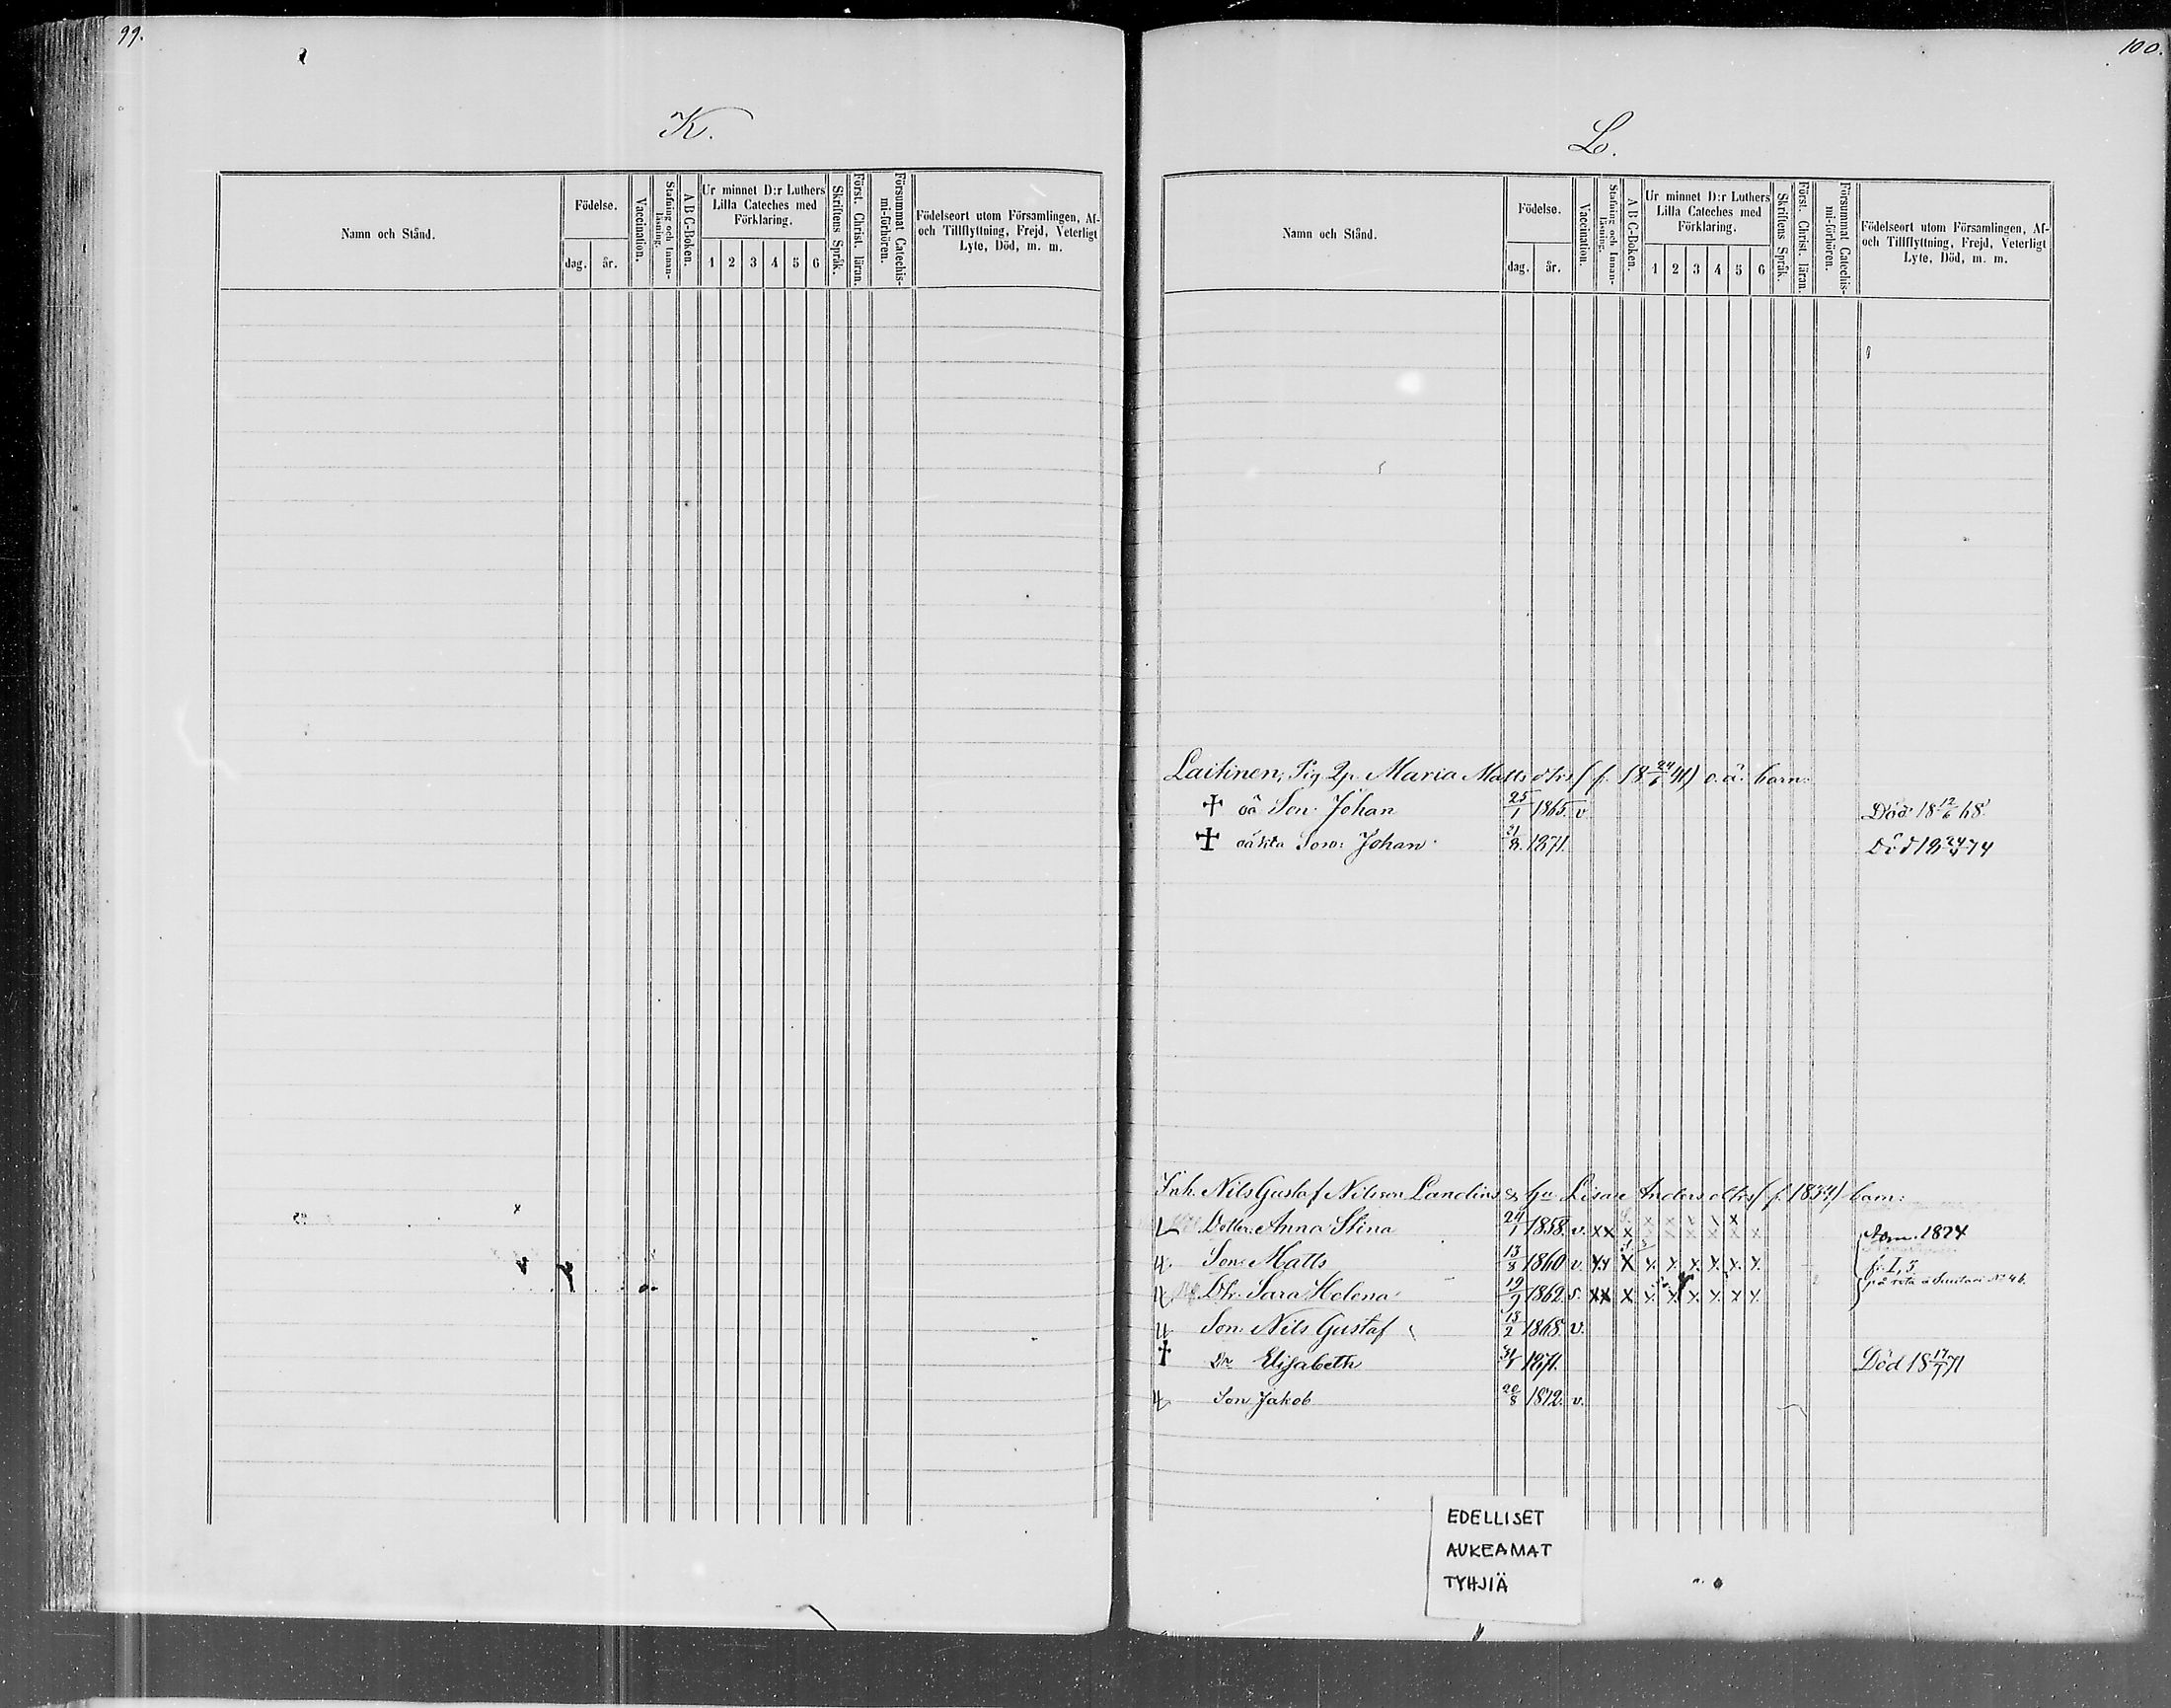 99.
K.
Namn och Stånd.
Födelse.
dag.
år.
Vaccination.
Stafning och Innan-
läsning.
A B C-Boken.
Ur minnet D:r Luthers
Lilla Cateches med
Förklaring.
1 2 3 4 5 6
Skriftens Språk.
Först. Christ. läran.
Försummat Catechis-
mi-förhören.
Födelseort utom Församlingen, Af-
och Tillflyttning, Frejd, Veterligt
Lyte, Död, m. m.
100.
L.
Namn och Stånd.
Födelse.
dag.
år.
Vaccination.
Stafning och Innan-
läsning.
A B C-Boken.
Ur minnet D:r Luthers
Lilla Cateches med
Förklaring.
1 2 3 4 5 6
Skriftens Språk.
Först. Christ. läran.
Försummat Catechis-
mi-förhören.
Födelseort utom Församlingen, Af-
och Tillflyttning, Frejd, Veterligt
Lyte, Död, m. m.
Laitinen, Pig. Maria Matts dtrs (f. 18 24/6 41) o.ä. barn:
† oä Son Johan 25/1 1865. v. Död 18 12/6 68
† oäkta Son: Johan 21/8 1871. Död 18 24/ 74
Inh. Nils Gustaf Nilsson Landins & hu Lisa Anders dtrs (f. 1834) barn:
Dotter Anna Stina 24/1 1858. v. xx x Nom. 1874
Son: Matts 13/8 1860 v. xx x x. x. x. x. x. x.
Dtr. Sara Helena 19/9 1862 s. xx x x. x. x. x. x x. på rota No 46.
Son: Nils Gustaf 13/2 1868. v.
† Dr Elisabeth 31/ 1871. Död 18 17/7 71
Son Jakob 20/8 1872. v.
EDELLISET
AUKEAMAT
TYHJIÄ